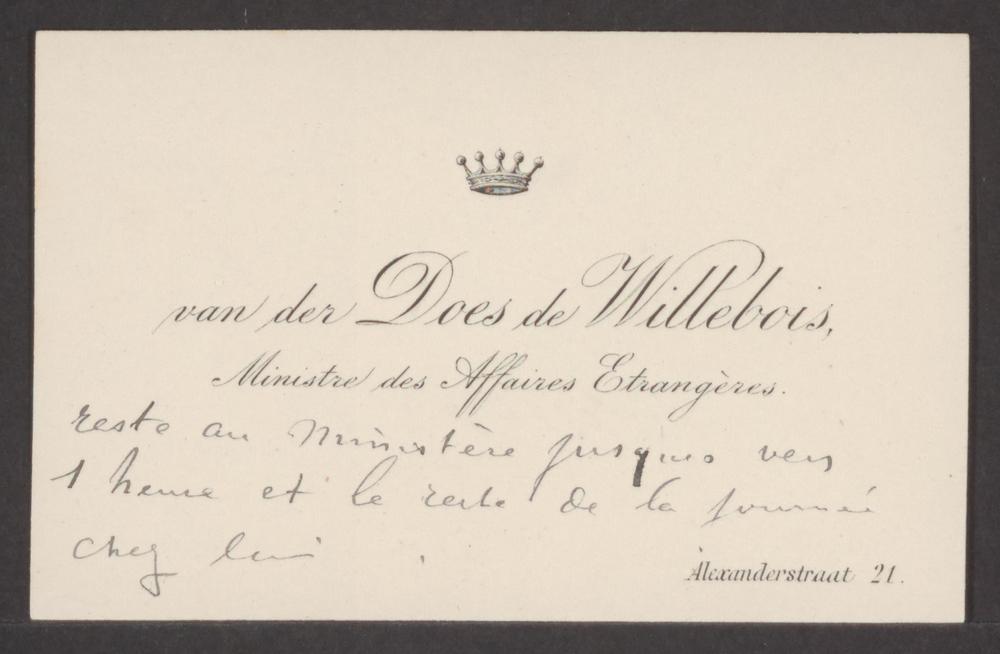 van der Does de Willebois,
Ministre des Affaires Etrangères.
reste au Ministère jusque vers
1 heure et le reste de la journée
chez lui.
Alexanderstraat 21.